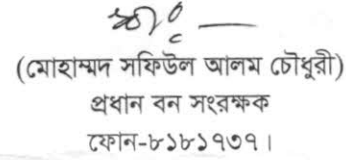 (মোহাম্মদ সফিউল আলম চৌধুরী)
প্রধান বন সংরক্ষক
ফোন-৮১৮১৭৩৭।